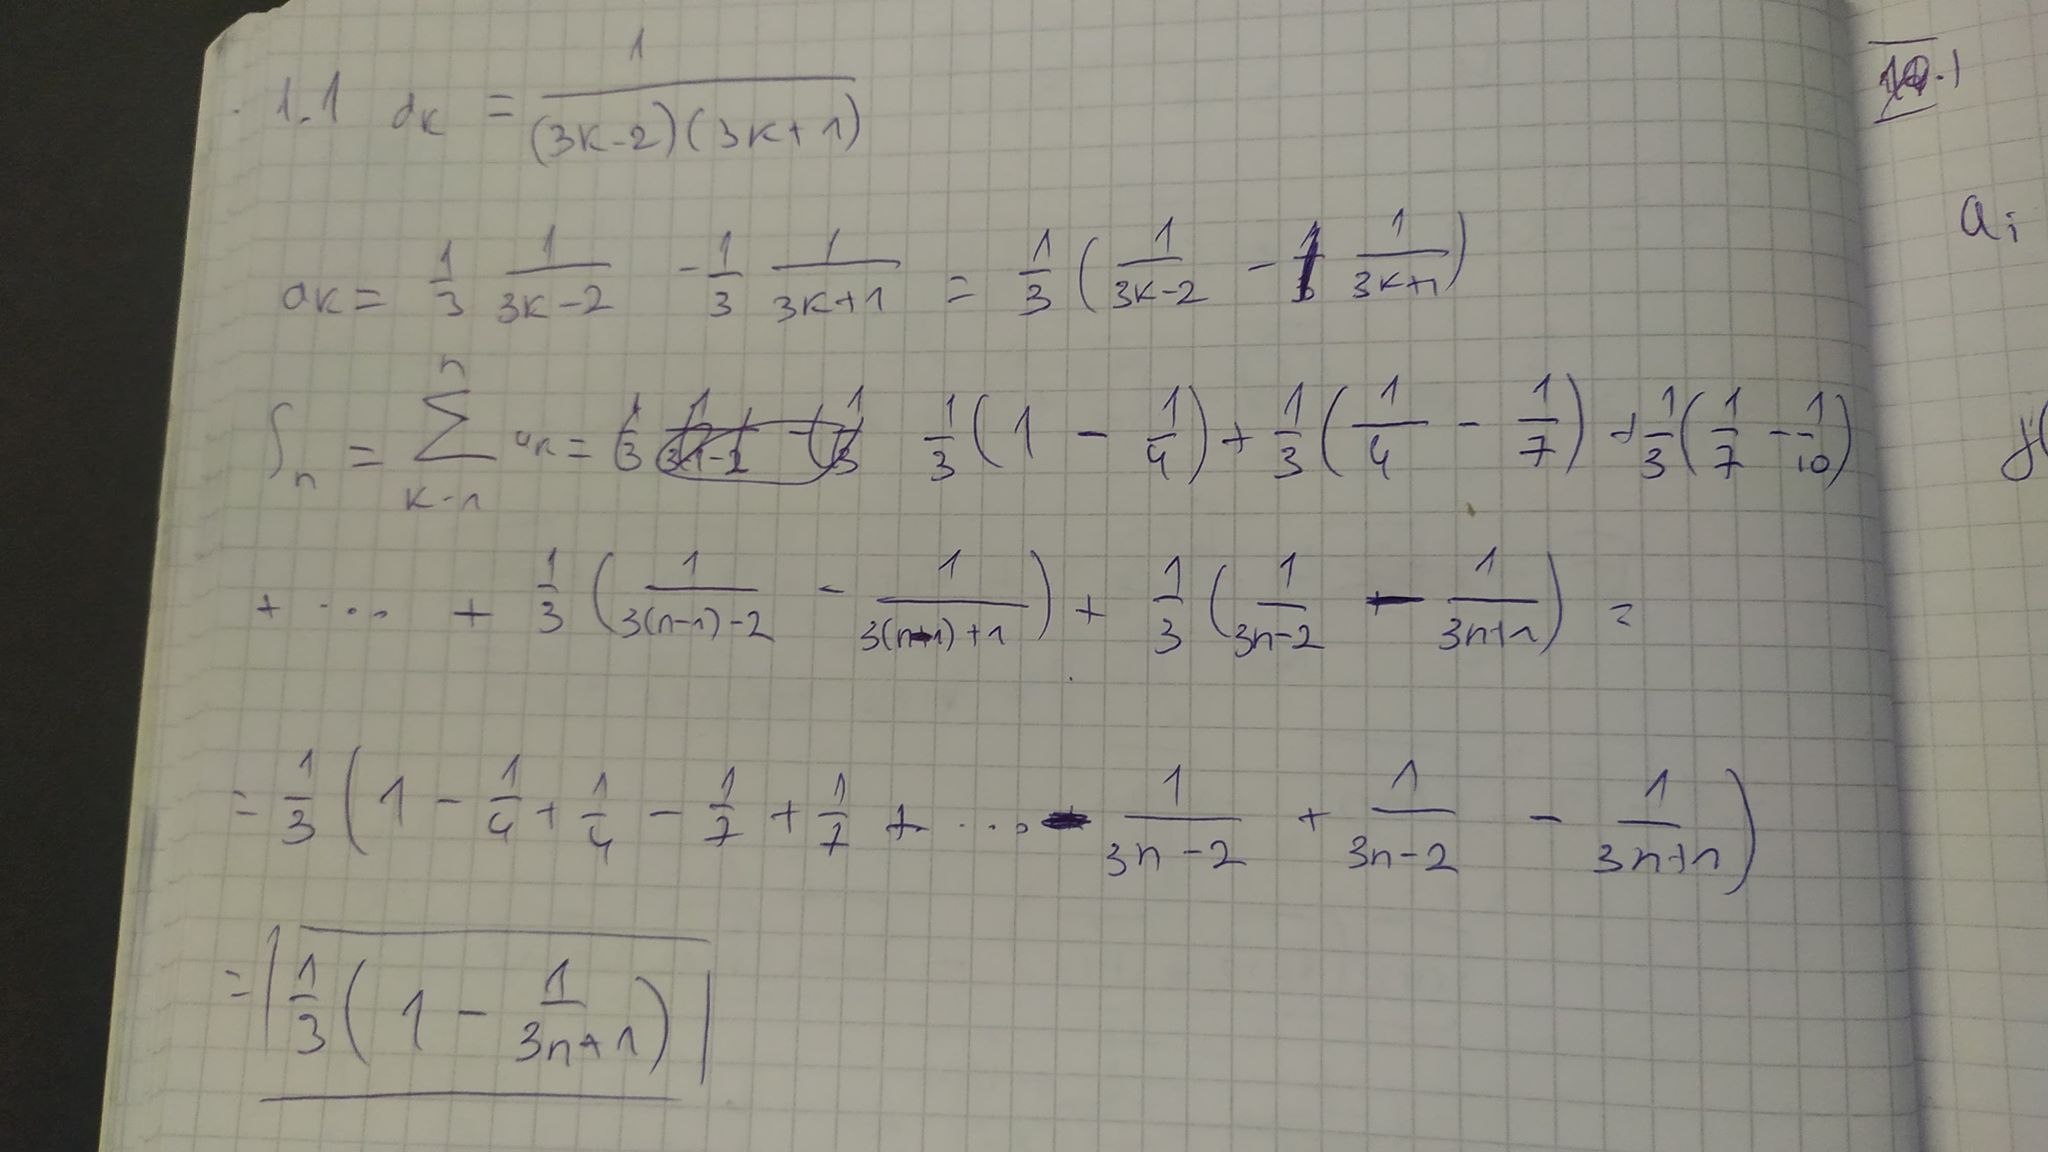 1.1 a_k = 1/((3k-2)(3k+1))
a_k = 1/3 1/(3k-2) - 1/3 1/(3k+1) = 1/3 (1/(3k-2) - 1/(3k+1))
S_n = ∑_{k=1}^{n} a_k = 1/3 (1 - 1/4) + 1/3 (1/4 - 1/7) + 1/3 (1/7 - 1/10)
+ ... + 1/3 (1/(3(n-1)-2) - 1/(3(n-1)+1)) + 1/3 (1/(3n-2) - 1/(3n+1)) =
= 1/3 (1 - 1/4 + 1/4 - 1/7 + 1/7 + ... - 1/(3n-2) + 1/(3n-2) - 1/(3n+1))
= 1/3 (1 - 1/(3n+1))
a_i